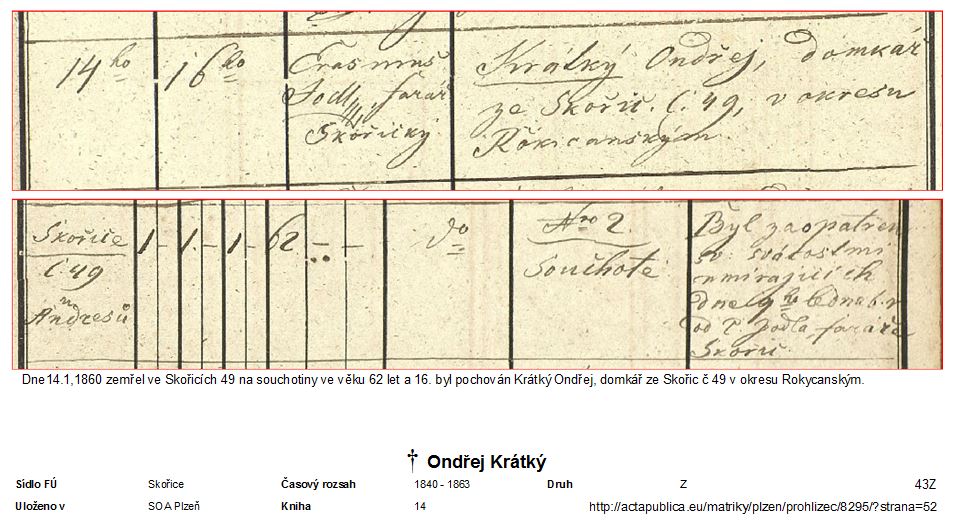 14ho
16ho
Erasmus
Jodl, farář
Skořický
Krátký Ondřej, domkář
ze Skořic. č. 49, v okresu
Rokicanským
Skořice
č 49
Andresů
1 - 1. - 1 - 62 - -
do
Nro 2.
Souchotě
Byl zaopatřen
sv. svátostmi
umírajících
dne 9ho ledna t. r.
od
faráře
Skořic.
Dne14.1,1860 zemřel ve Skořicích 49 na souchotiny ve věku 62 let a 16. byl pochován Krátký Ondřej, domkář ze Skořic č 49 v okresu Rokycanským.
† Ondřej Krátký
Sídlo FÚ Skořice Časový rozsah 1840 - 1863 Druh Z 43Z
Uloženo v SOA Plzeň Kniha 14 http://actapublica.eu/matriky/plzen/prohlizec/8295/?strana=52